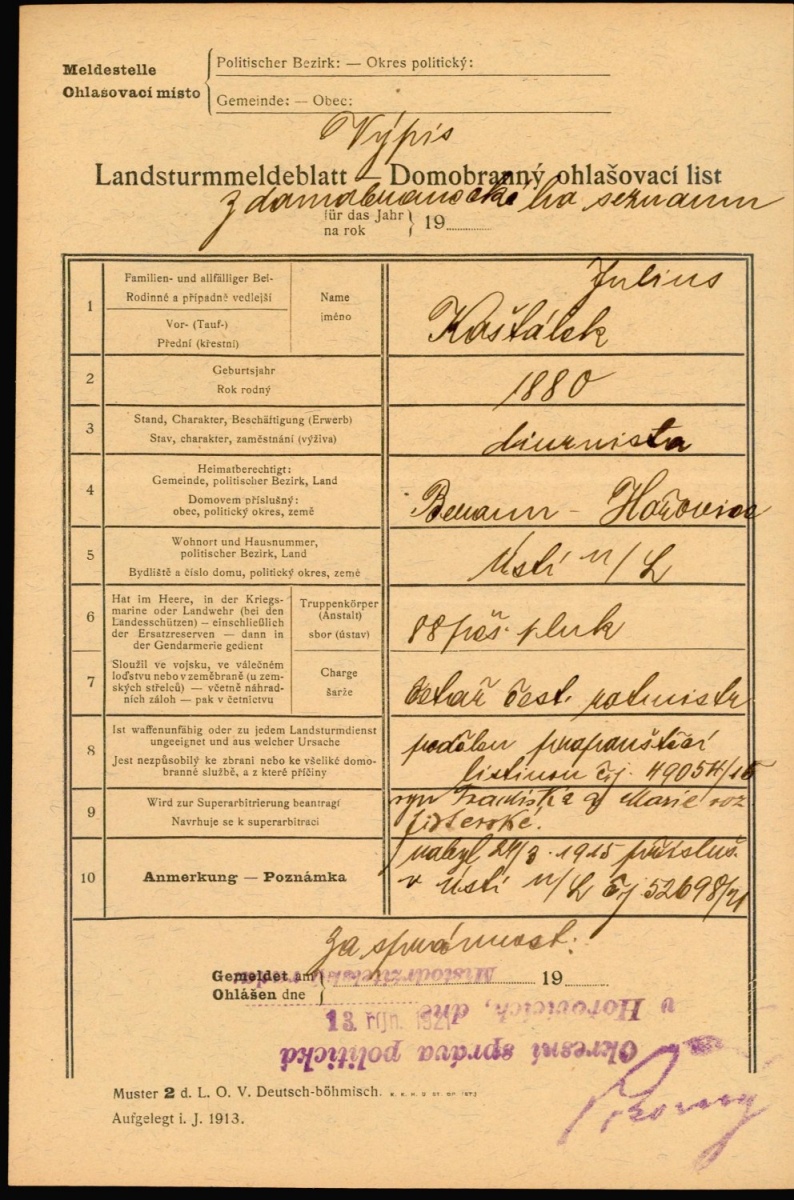 Meldestelle
Ohlašovací místo
Politischer Bezirk: — Okres politický:
Gemeinde: — Obec:
Výpis
Landsturmmeldeblatt – Domobranný ohlašovací list
z domobraneckého seznamu
für das Jahr
na rok
19
1
Familien- und allfälliger Bei-
Rodinné a případně vedlejší
Vor- (Tauf-)
Přední (křestní)
Name
jméno
Julius
Kaštálek
2
Geburtsjahr
Rok rodný
1880
3
Stand, Charakter, Beschäftigung (Erwerb)
Stav, charakter, zaměstnání (výživa)
diurnista
4
Heimatberechtigt:
Gemeinde, politischer Bezirk, Land
Domovem příslušný:
obec, politický okres, země
Beraun – Hořovice
5
Wohnort und Hausnummer,
politischer Bezirk, Land
Bydliště a číslo domu, politický okres, země
Ústí n/L
6
Hat im Heere, in der Kriegs-
marine oder Landwehr (bei den
Landesschützen) – einschließlich
der Ersatzreserven — dann in
der Gendarmerie gedient
Truppenkörper
(Anstalt)
sbor (ústav)
88 pěš. pluk
7
Sloužil ve vojsku, ve válečném
loďstvu nebo v zeměbraně (u zem-
ských střelců) — včetně náhrad-
ních záloh — pak v četnictvu
Charge
šarže
četař čest. rotmistr
8
Ist waffenunfähig oder zu jedem Landsturmdienst
ungeeignet und aus welcher Ursache
Jest nezpůsobilý ke zbrani nebo ke všeliké domo-
branné službě, a z které příčiny
podělen propouštěcí
listinou čj.
9
Wird zur Superarbitrierung beantragt
Navrhuje se k superarbitraci
syn Františka a Marie roz.
10
Anmerkung — Poznámka
nabyl 24/3. 1915 přísluš.
v Ústí n/L čj 52698/21
Za správnost:
Gemeldet am
Ohlášen dne
19
Okresní správa politická
v Hořovicích, dne
13. říjn. 1921
Muster 2 d. L. O. V. Deutsch-böhmisch.
Aufgelegt i. J. 1913.